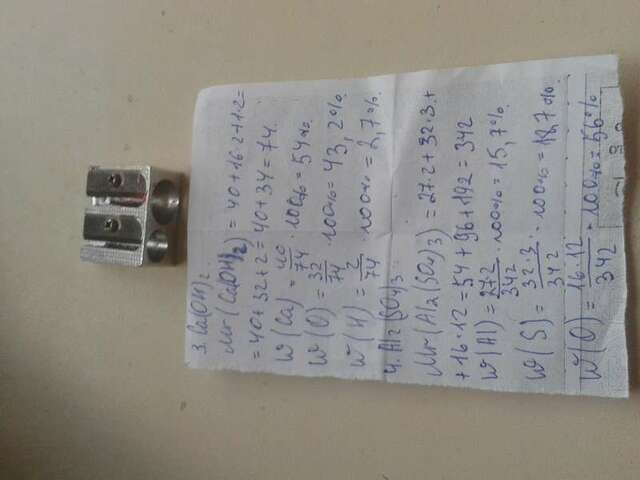 3. Ca(OH)₂
Mr(Ca(OH)₂) = 40+16·2+1·2=
=40+32+2=40+34=74.
W(Ca) = 40/74 · 100% = 54%.
W(O) = 32/74 · 100% = 43,2%.
W(H) = 2/74 · 100% = 2,7%.
4. Al₂(SO₄)₃
Mr(Al₂(SO₄)₃) = 27·2+32·3+
+16·12=54+96+192=342
W(Al) = 27·2/342 · 100% = 15,7%.
W(S) = 32·3/342 · 100% = 18,7%.
W(O) = 16·12/342 · 100% = 56%